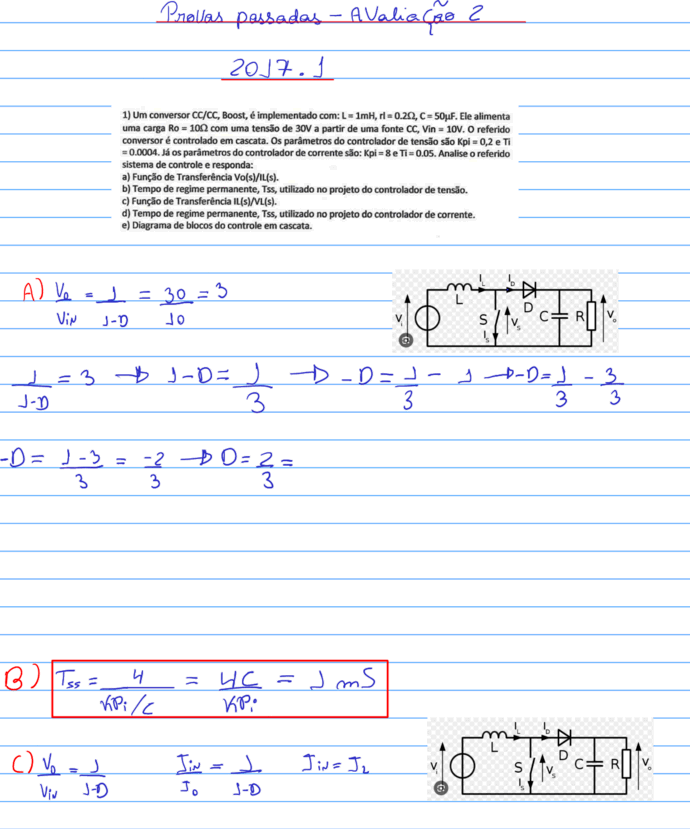 Provas passadas – Avaliação 2
2017.1
1) Um conversor CC/CC, Boost, é implementado com: L = 1mH, rl = 0.2Ω, C = 50μF. Ele alimenta
uma carga Ro = 10Ω com uma tensão de 30V a partir de uma fonte CC, Vin = 10V. O referido
conversor é controlado em cascata. Os parâmetros do controlador de tensão são Kpi = 0,2 e Ti
= 0.0004. Já os parâmetros do controlador de corrente são: Kpi = 8 e Ti = 0.05. Analise o referido
sistema de controle e responda:
a) Função de Transferência Vo(s)/IL(s).
b) Tempo de regime permanente, Tss, utilizado no projeto do controlador de tensão.
c) Função de Transferência IL(s)/VL(s).
d) Tempo de regime permanente, Tss, utilizado no projeto do controlador de corrente.
e) Diagrama de blocos do controle em cascata.
A) Vo/Vin = 1/1-D = 30/10 = 3
Vi L IL ID D S Is Vs C R Vo
1/1-D = 3 → 1-D = 1/3 → -D = 1/3 - 1 → -D = 1/3 - 3/3
-D = 1-3/3 = -2/3 → D = 2/3 =
B) Tss = 4/KPi/C = 4C/KPi = 1 mS
C) Vo/Vin = 1/1-D Iin/Io = 1/1-D Iin = IL
Vi L IL ID D S Is Vs C R Vo